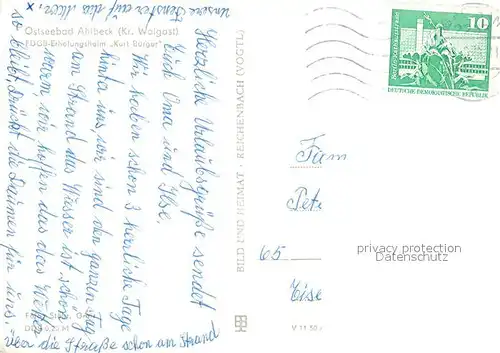 Ostseebad Ahlbeck (Kr. Wolgast)
FDGB-Erholungsheim „Kurt Bürger"
x unsere Fenster auf das Meer.
Herzliche Urlaubsgrüße sendet
Euch Oma und Ilse.
Wir haben schon 3 herrliche Tage
hinter uns, wir sind den ganzen Tag
am Strand das Wasser ist schön
warm, wir hoffen das das Wetter
so bleibt, drückt die Daumen für uns.
über die Straße schon am Strand
BILD UND HEIMAT · REICHENBACH (VOGTL)
10
DEUTSCHE DEMOKRATISCHE REPUBLIK
Fam
Pet
65
Eise
privacy protection
Datenschutz
V 11 50